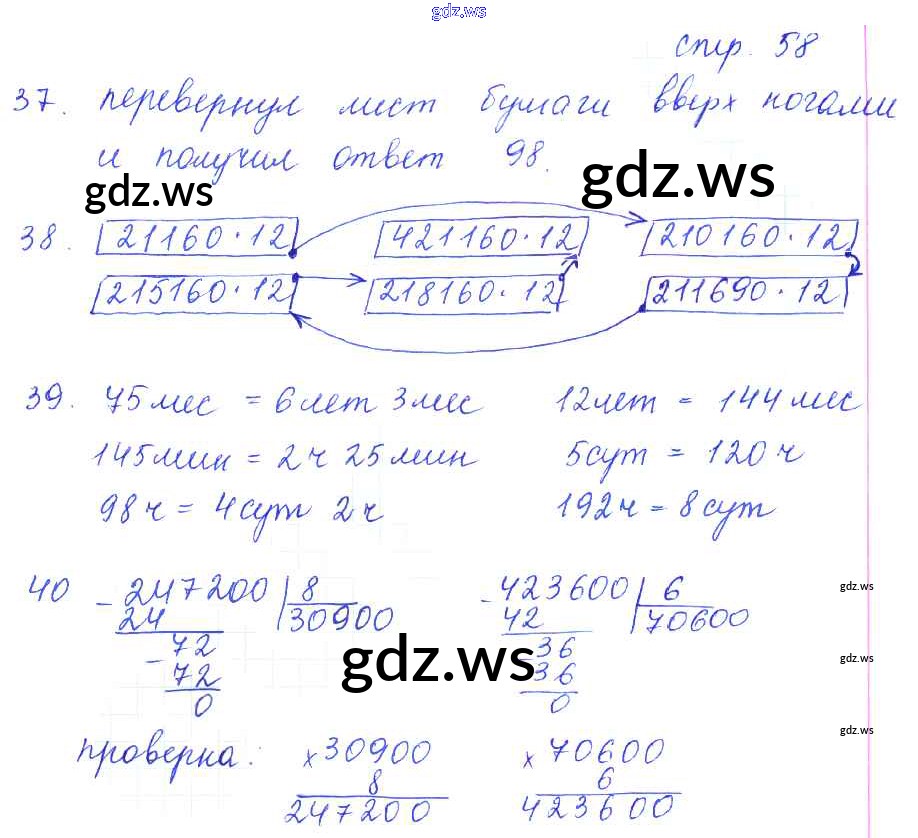 gdz.ws
стр. 58
37. перевернул лист бумаги вверх ногами
и получил ответ 98.
gdz.ws
gdz.ws
38. 21160·12 421160·12 210160·12
215160·12 218160·12 211690·12
39. 75 мес = 6 лет 3 мес 12 лет = 144 мес
145 мин = 2 ч 25 мин 5 сут = 120 ч
98 ч = 4 сут 2 ч 192 ч = 8 сут
40 - 247200 8 - 423600 6
24 30900 42 70600
- 72 36
72 36
0 0
gdz.ws
gdz.ws
gdz.ws
gdz.ws
проверка: x 30900 x 70600
8 6
247200 423600